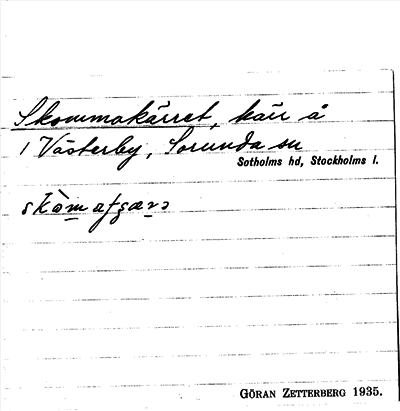 Skommakärret, kärr å
1 Västerby, Sorunda sn
Sotholms hd, Stockholms l.
GÖRAN ZETTERBERG 1935.